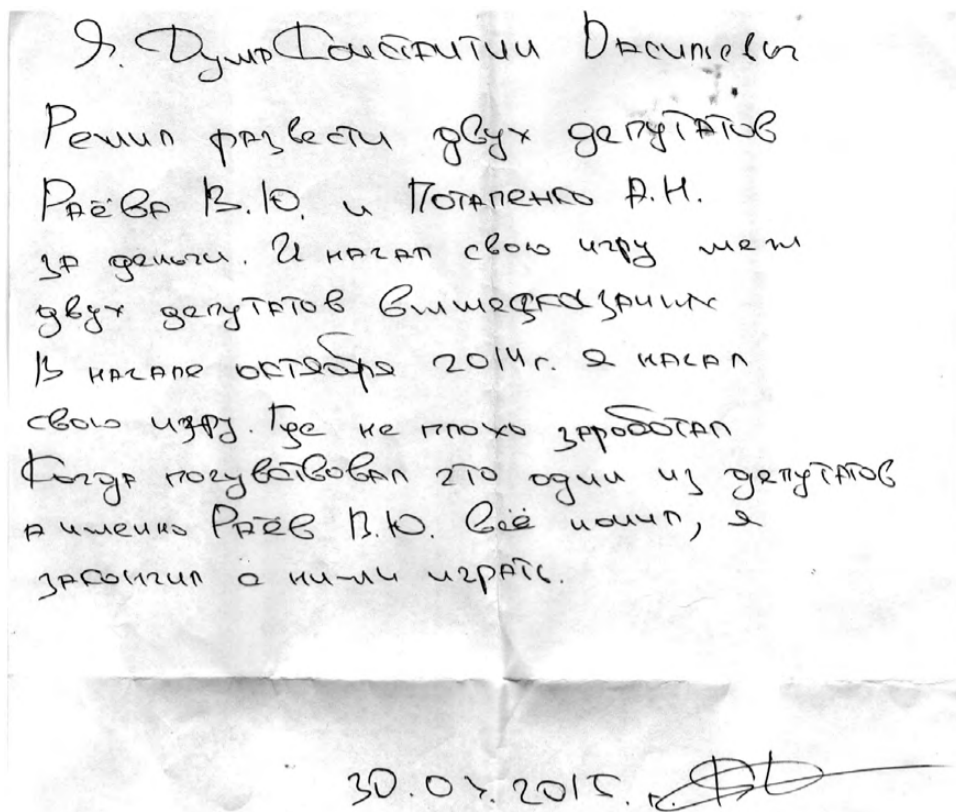 Я. Дума Константин Васильевич
Решил развести двух депутатов
Раёва В.Ю. и Потапенко А.Н.
за деньги. И начал свою игру меж
двух депутатов вышеуказаных
В начале октября 2014г. я начал
свою игру. Где не плохо зароботал
Когда почувствовал что один из депутатов
а именно Раёв В.Ю. всё понил, я
закончил с ни-ми играть.
2015.